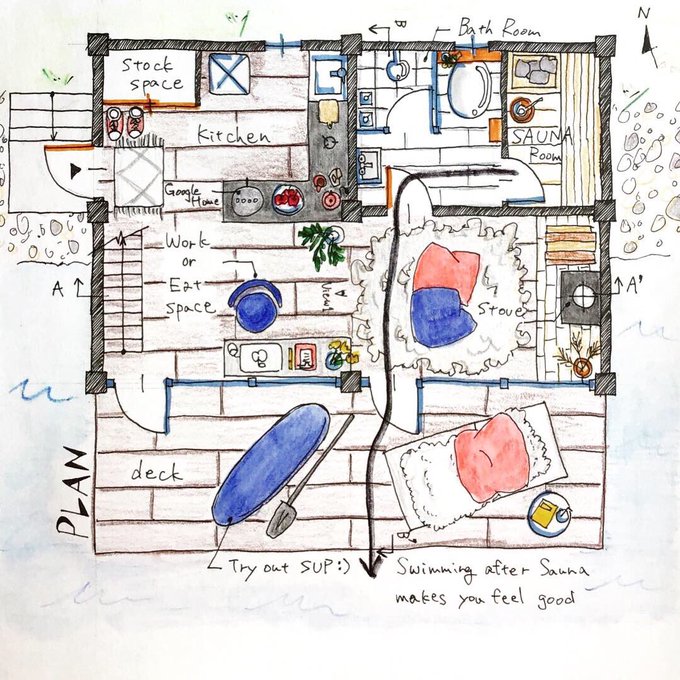 N
B
Bath Room
Stock
space
Kitchen
SAUNA
Room
Google
Home
Work
or
Eat
space
A
View1
Stove
A'
deck
PLAN
B'
Try out SUP:)
Swimming after Sauna
makes you feel good